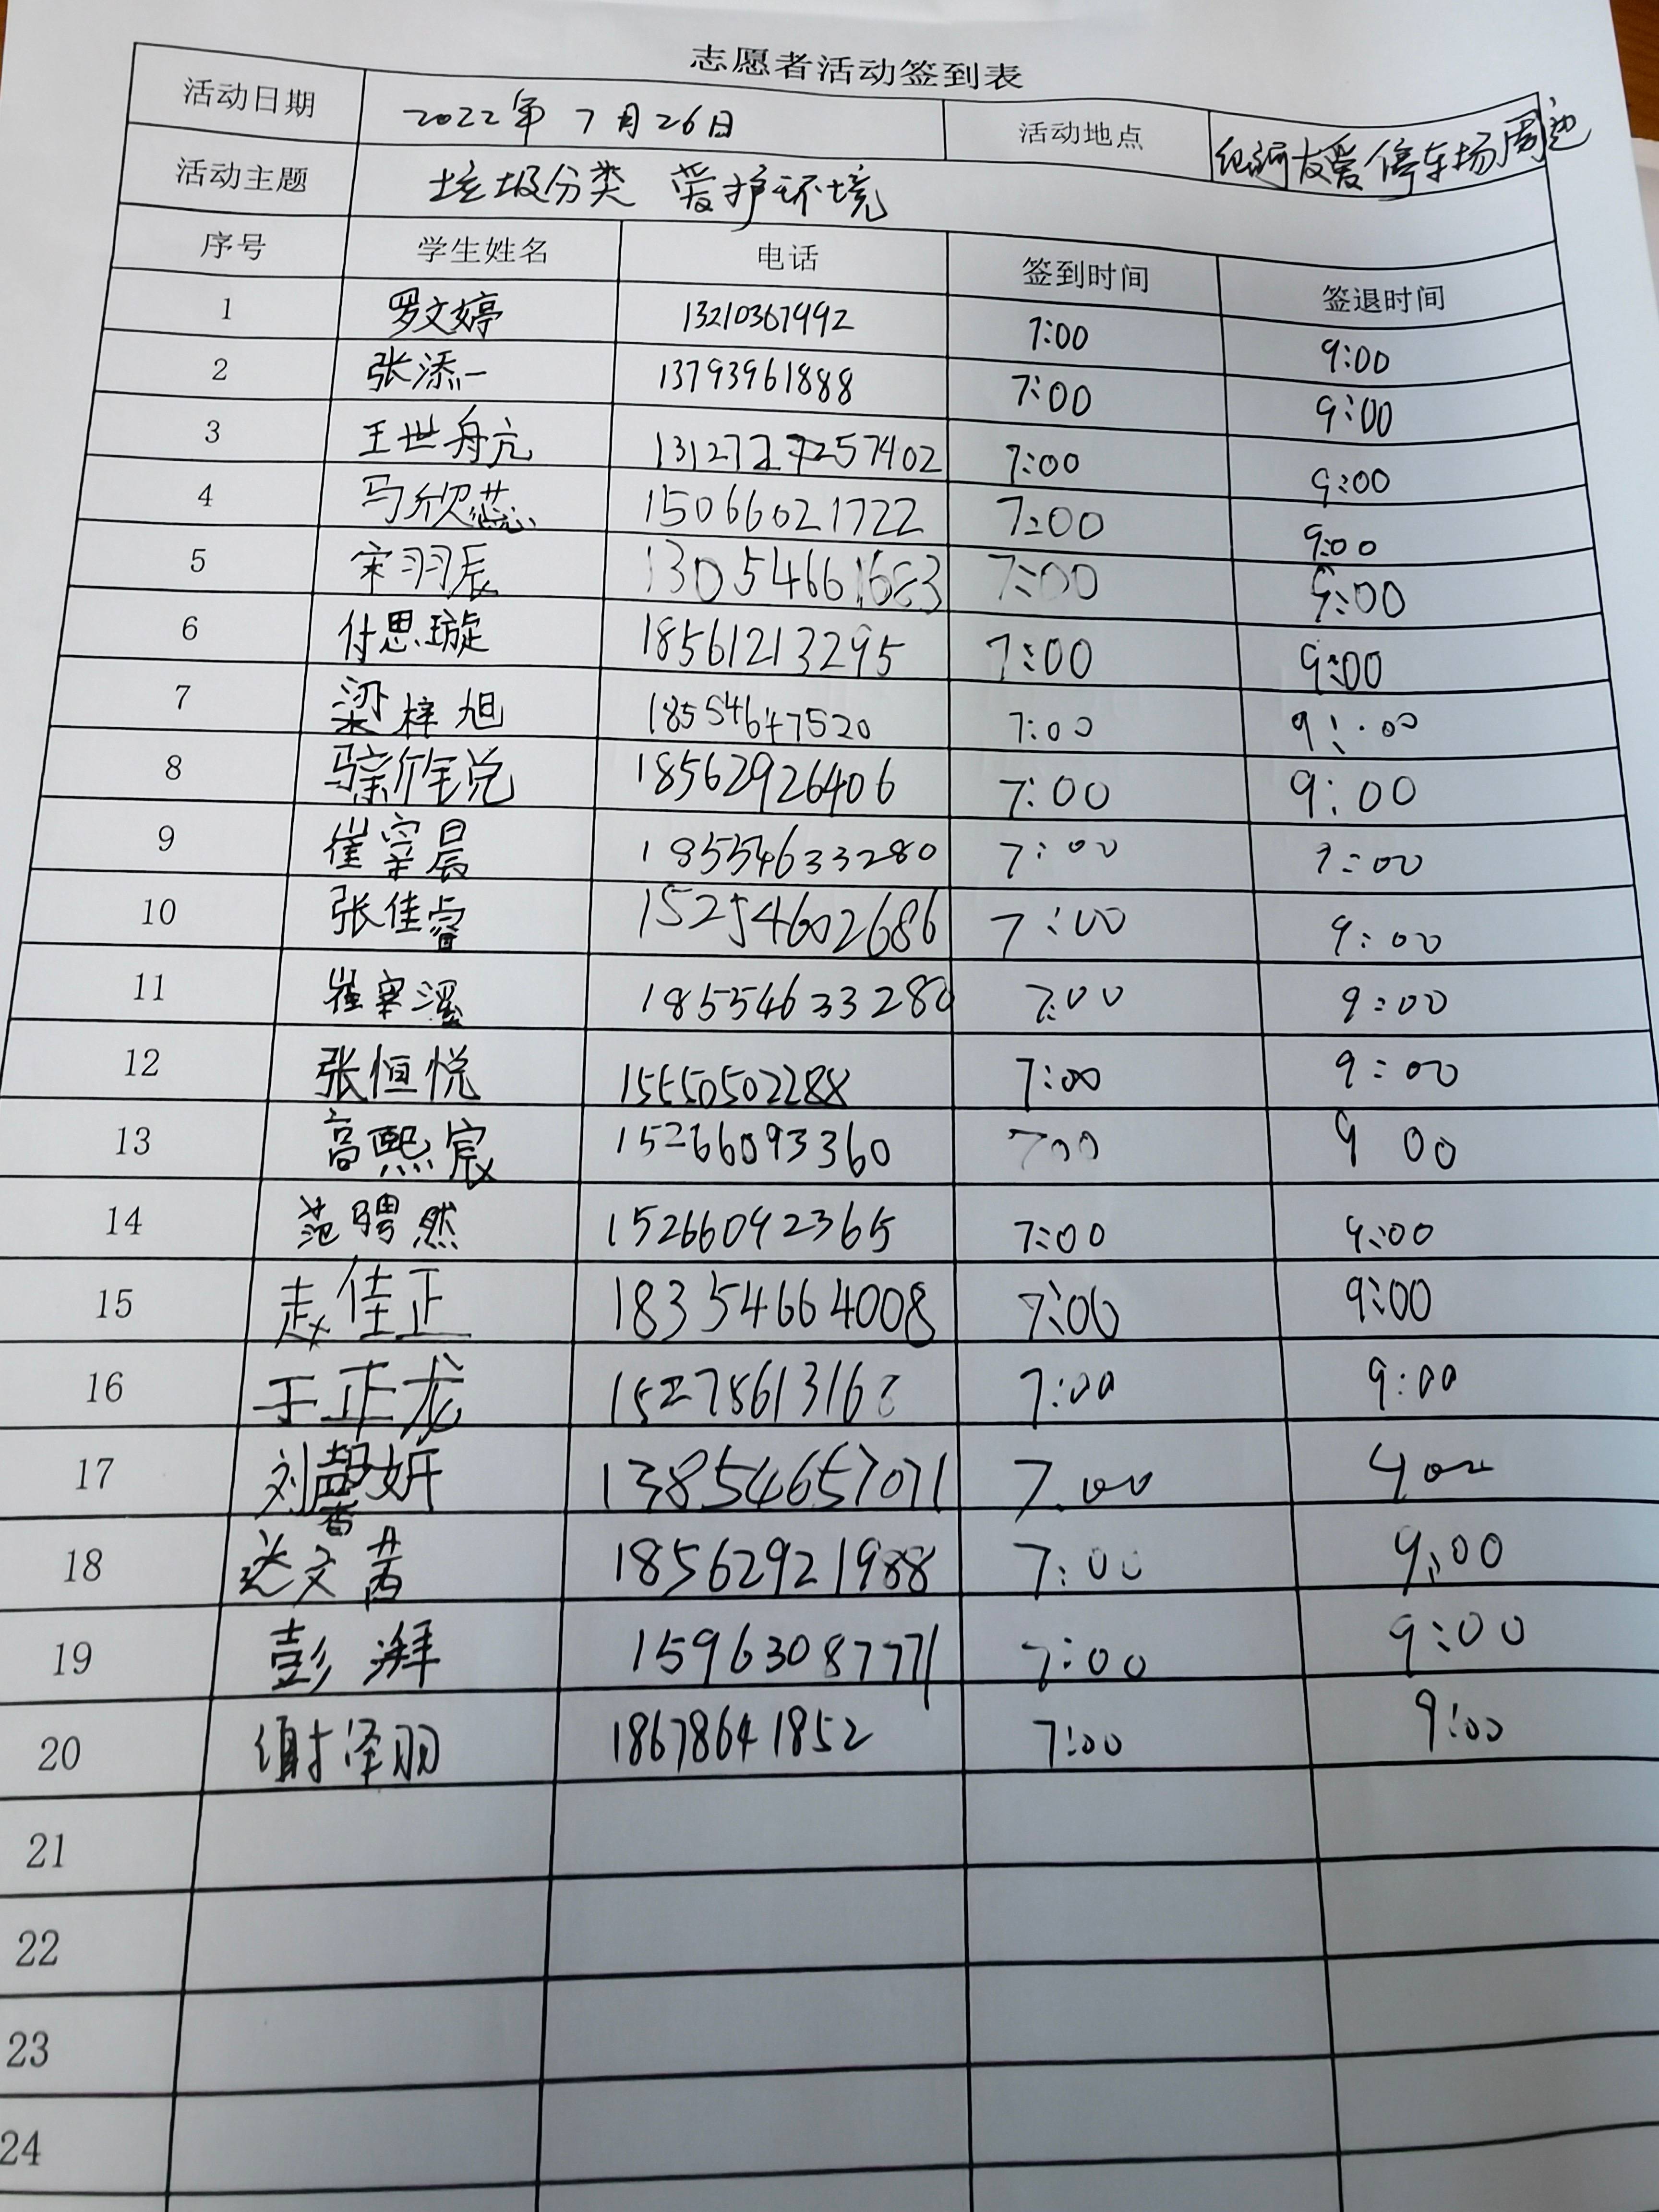 志愿者活动签到表
活动日期 2022年7月26日 活动地点 友爱停车场周边
活动主题 垃圾分类 爱护环境
序号 学生姓名 电话 签到时间 签退时间
1 罗文婷 13210367992 7:00 9:00
2 张添一 13793961888 7:00 9:00
3 王世舟亢 7:00 9:00
4 马欣蕊 15066021722 7:00 9:00
5 宋羽辰 7:00 9:00
6 付思璇 18561213295 7:00 9:00
7 梁梓旭 18554647520 7:00 9:00
8 18562926406 7:00 9:00
9 崔宰晨 18554633280 7:00 9:00
10 张佳睿 15254602686 7:00 9:00
11 崔宰溪 18554633280 7:00 9:00
12 张恒悦 15550502288 7:00 9:00
13 高熙宸 15266093360 700 9 00
14 范骋然 15266092365 7:00 9:00
15 赵佳正 18354664008 7:00 9:00
16 于正龙 7:00 9:00
17 刘馨妍 13854657071 7.00 9 00
18 文茜 18562921988 7:00 9:00
19 彭湃 15963087771 7:00 9:00
20 谢泽羽 18678641852 7:00 9:00
21
22
23
24